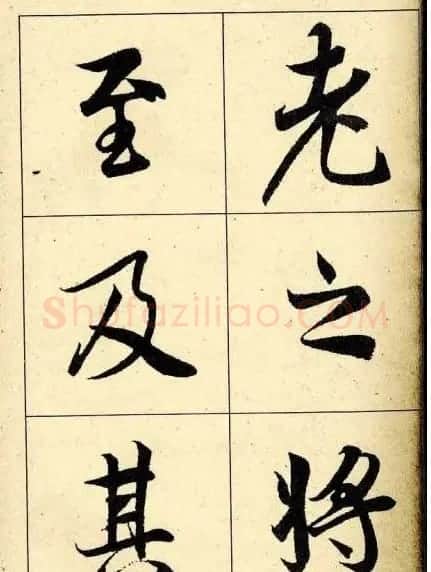 老之将
至及其
Shufaziliao.COM